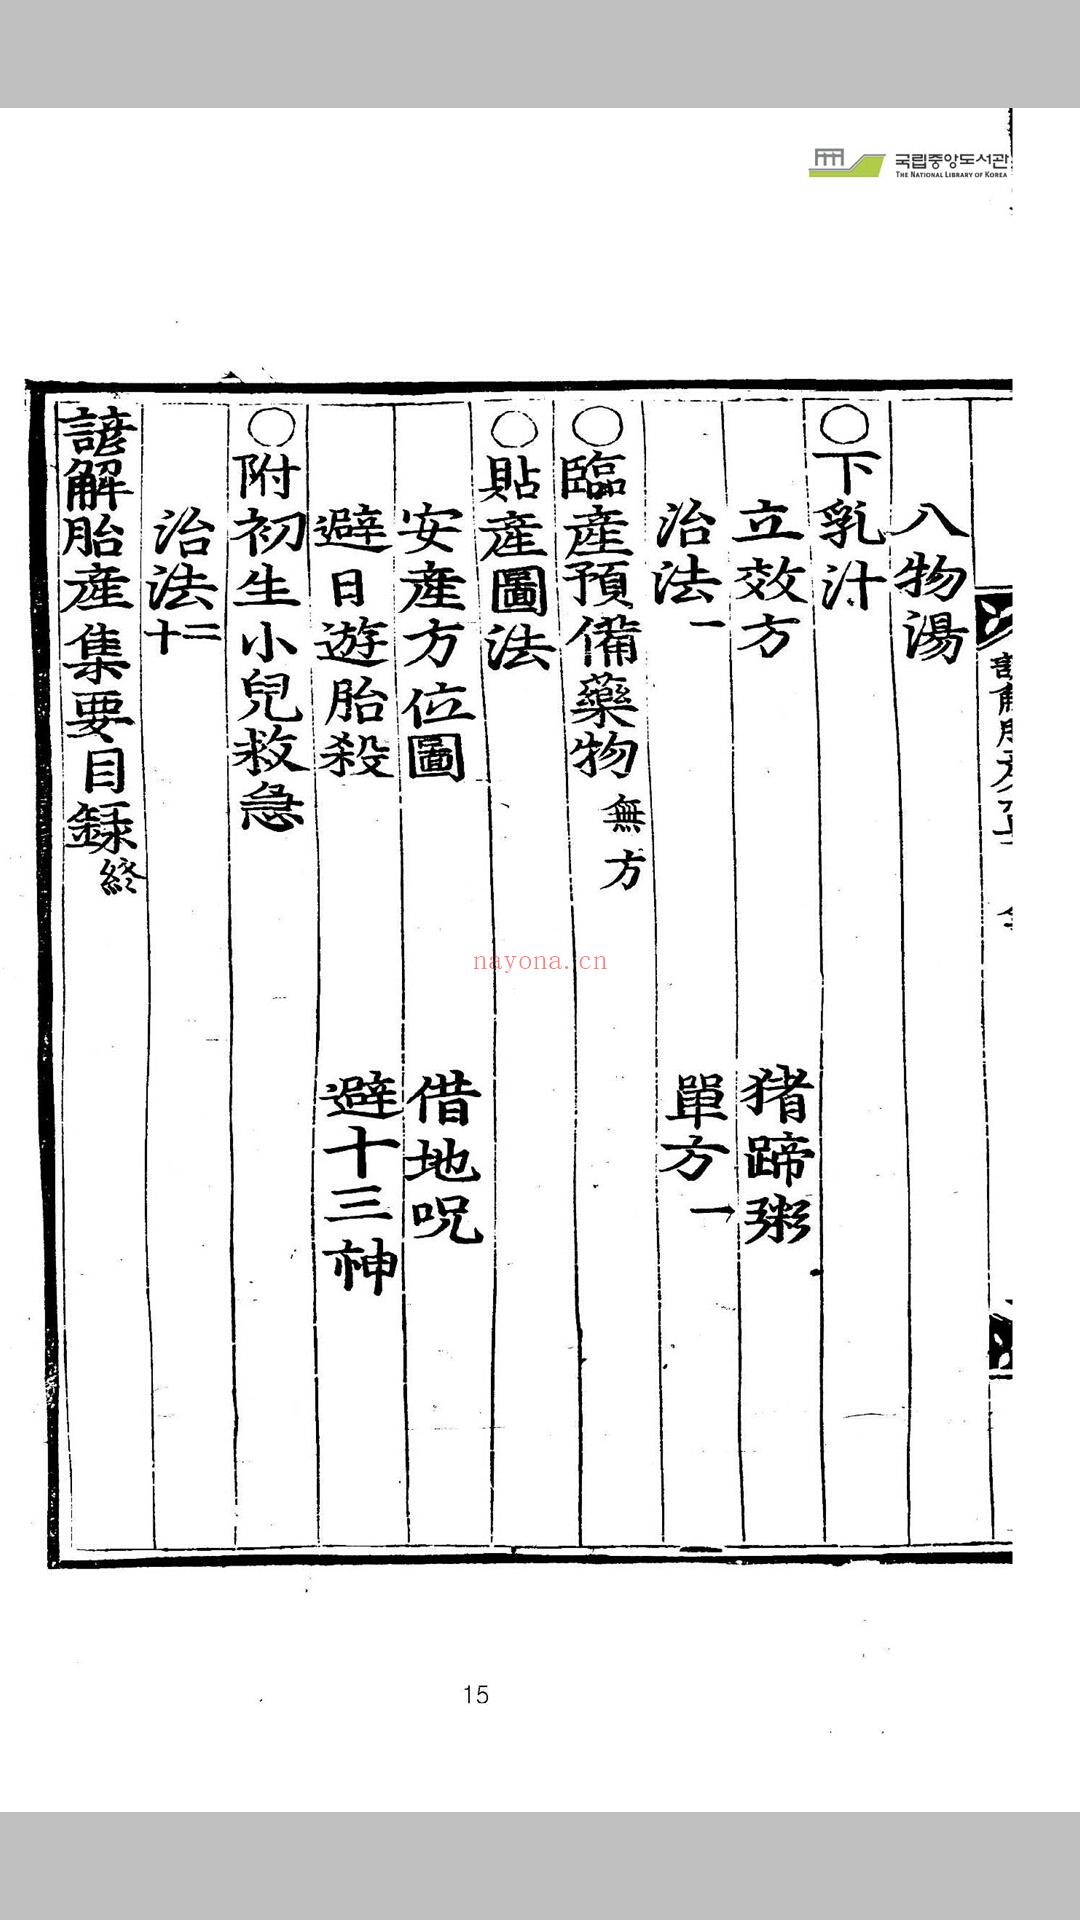 국립중앙도서관
THE NATIONAL LIBRARY OF KOREA
八物湯
○下乳汁
立效方 猪蹄粥
治法一 單方一
○臨産預備藥物無方
○貼産圖法
安産方位圖 借地呪
避日遊胎殺 避十三神
○附初生小兒救急
治法十二
諺解胎産集要目録終
nayona.cn
15